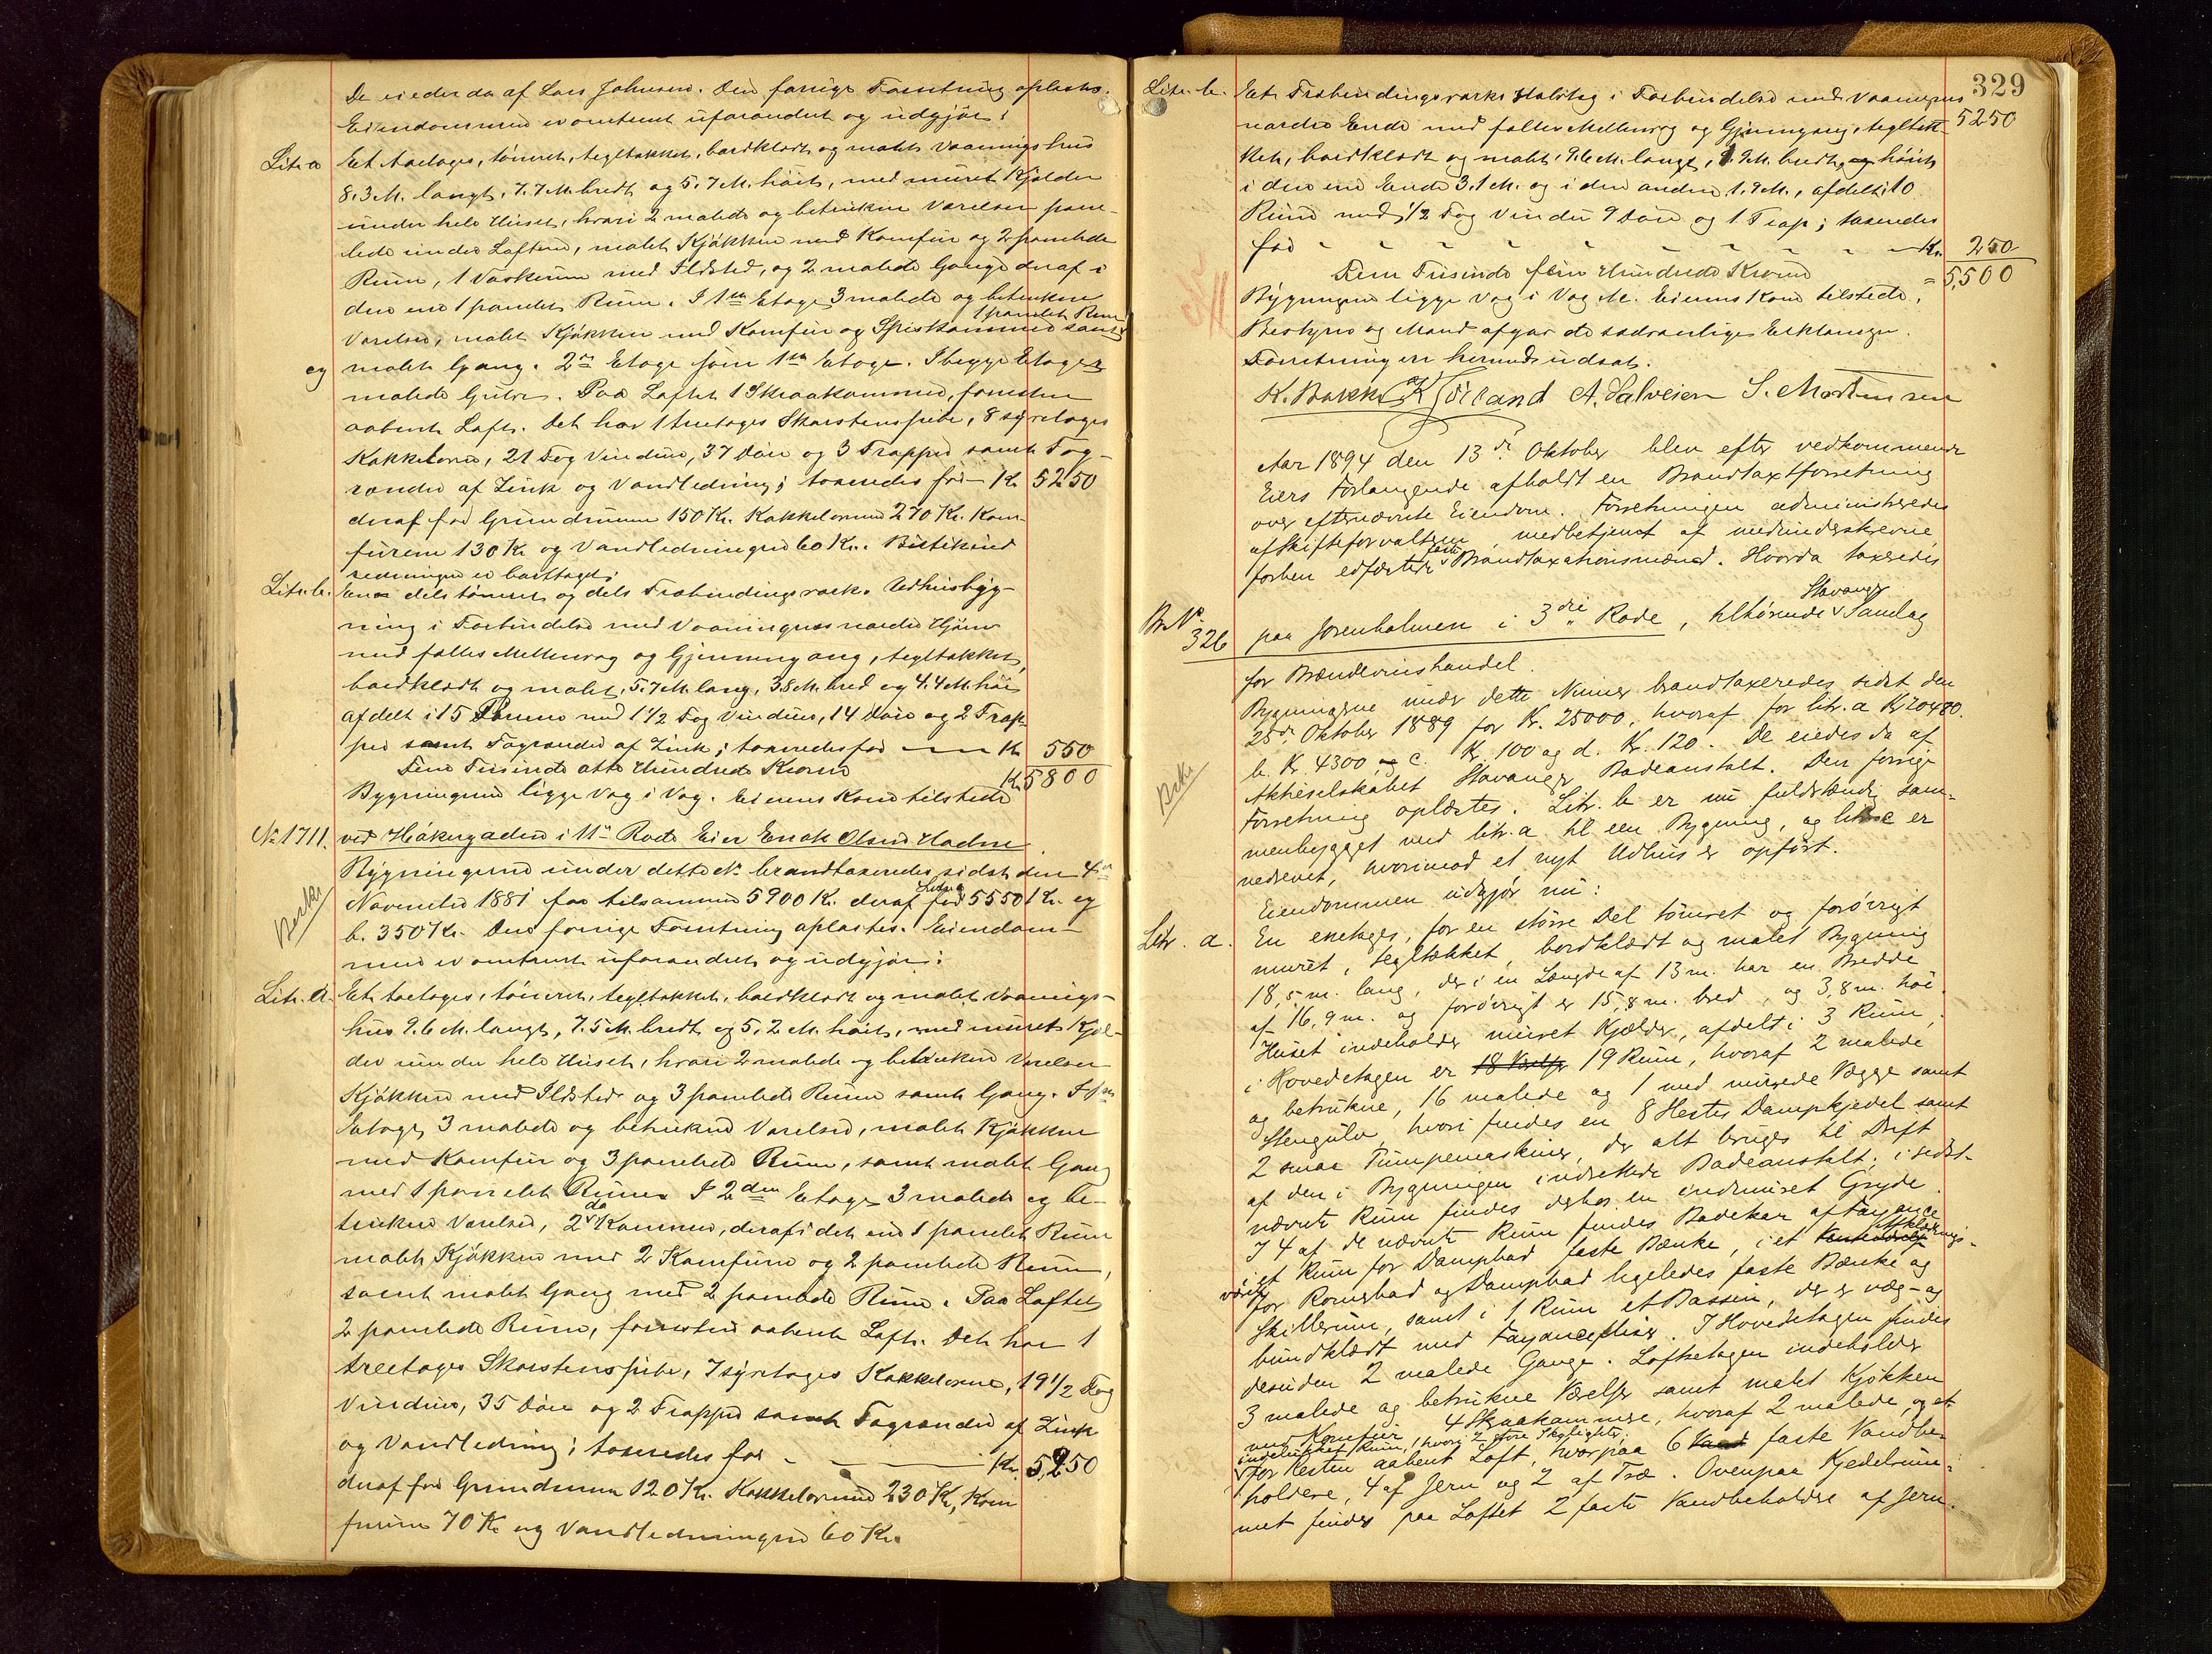 De eiedes da af Lars Johnsen. Den forrige Forretning oplæstes.
Eiendommen er omtrent uforandret og udgjør:
Litr. a Et toetages, tømret, tegltækket, bordklædt og malet Vaaningshus
8.3 M. langt, 7.7 M. bredt og 5.7 M. høit, med muret Kjælder
under hele Huset, hvori 2 malede og betrukne Værelser, pane-
lede under Loftene, malet Kjøkken med Komfur og 2 panelede
Rum, 1 Vaskerum med Ildsted, og 2 malede Gange deraf i
den ene 1 panelet Rum. I 1ste Etage 3 malede og betrukne
Værelser, malet Kjøkken med Komfur og Spiskammer samt 1 panelet Rum
og malet Gang. 2den Etage som 1ste Etage. I begge Etager
malede Gulve. Paa Loftet 1 Skraakammer, forresten
aabent Loft. Det har 1 treetages Skorstenspibe, 8 syvetages
Kakkelovne, 21 Fag Vinduer, 37 Døre og 3 Trapper samt Tag-
render af Zink og Vandledning; taxeredes for – Kr 5250
deraf for Grundmuren 150 Kr. Kakkelovnene 270 Kr. Kom-
furerne 130 Kr og Vandledningen 60 Kr. Butikind
redningen er borttaget;
Litr. b. En dels tømret og dels Trebindingsværks Udhusbyg-
ning i Forbindelse med Vaaningens nordre Hjørne
med fælles Mellemvæg og Gjennemgang, tegltækket,
bordklædt og malet, 5.7 M. lang, 3.8 M. bred og 4.4 M. høi
afdelt i 15 Rum med 1 1/2 Fag Vinduer, 14 Døre og 2 Trap-
per samt Tagrender af Zink; taxeredes for — Kr 550
Fem Tusinde otte Hundrede Kroner Kr. 5800
Bygningerne ligge Væg i Væg. Eierens Kone tilstede
No. 1711. ved Høkergaden i 11te Rode Eier Enok Olsen Hadne
Bygningerne under dette No. brandtaxeredes sidst den 4de
November 1881 for tilsammen 5900 Kr. deraf for Litra a 5550 Kr. og
b. 350 Kr. Den forrige Forretning oplæstes. Eiendom-
men er omtrent uforandret og udgjør:
Litr. a. Et toetages, tømret, tegltækket, bordklædt og malet Vaanings-
hus 9.6 M. langt, 7.5 M. bredt og 5.2 M. høit, med muret Kjæl-
der under hele Huset, hvori 2 malede og betrukne Værelser
Kjøkken med Ildsted og 3 panelede Rum samt Gang. I 1ste
Etage 3 malede og betrukne Værelser, malet Kjøkken
med Komfur og 3 panelede Rum, samt malet Gang
med 1 panelet Rum. I 2den Etage 3 malede og be-
trukne Værelser, 2 do Kammer, deraf i det ene 1 panelet Rum
malet Kjøkken med 2 Komfurer og 2 panelede Rum,
samt malet Gang med 2 panelede Rum. Paa Loftet
2 panelede Rum, forresten aabent Loft. Det har 1
treetages Skorstenspibe, 7 syvetages Kakkelovne, 19 1/2 Fag
Vinduer, 35 Døre og 2 Trapper samt Tagrender af Zink
og Vandledning; taxeredes for – — Kr. 5,250
deraf for Grundmuren 120 Kr. Kakkelovnene 230 Kr, Kom
furerne 70 Kr og Vandledningen 60 Kr.
329
Litr. b. Et Trebindingsværks Halvtag i Forbindelse med Vaaningens
nordre Ende med fælles Mellemvæg og Gjennemgang, tegltæk- 5250
ket, bordklædt og malet, 9.6 M. langt, 1.9 M. bredt, høit
i den ene Ende 3.1 M. og i den anden 1.9 M., afdelt i 10
Rum med 1/2 Fag Vindu 9 Døre og 1 Trap; taxeredes
for – – – – Kr. 250
Fem Tusinde fem Hundrede Kroner = 5,500
Bygningerne ligge Væg i Væg. Eierens Kone tilstede.
Bestyrer og Mænd afgav de sædvanlige Erklæringer.
Forretningen hermed udsat.
K. Bakke K Joiland A. Salvesen S. Mortensen
Aar 1894 den 13de Oktober blev efter vedkommende
Eiers Forlangende afholdt en Brandtaxtforretning
over efternævnte Eiendom. Forretningen administreredes
af Skifteforvalteren, medbetjent af medunderskrevne
forhen edfæstede faste Brandtaxationsmænd. Hvorda taxeredes
Br. No. 326 paa Jorenholmen i 3die Rode, tilhørende Stavanger Samlag
for Brændevinshandel.
Bygningerne under dette Numer brandtaxeredes sidst den
25de Oktober 1889 for Kr. 25000, hvoraf for litr. a Kr 20480.
b. Kr. 4300, c. Kr. 100 og d. Kr. 120. De eiedes da af
Aktieselskabet Stavanger Badeanstalt. Den forrige
Forretning oplæstes. Litr. b er nu fuldstændig sam-
menbygget med litr. a til een Bygning, og litr. c er
nedrevet, hvorimod et nyt Udhus er opført.
Eiendommen udgjør nu:
Litr. a. En enetages, for en større Del tømret og forøvrigt
muret, tegltækket, bordklædt og malet Bygning
18,5 m. lang, der i en Længde af 13 m. har en Bredde
af 16,9 m. og forøvrigt er 15,8 m. bred, og 3,8 m. høi.
Huset indeholder muret Kjælder, afdelt i 3 Rum,
i Hovedetagen er 18 Værelser 19 Rum, hvoraf 2 malede
og betrukne, 16 malede og 1 med murede Vægge samt
Stengulv, hvori findes en 8 Hestes Dampkjedel samt
2 smaa Pumpemaskiner, der alt bruges til Drift
af den i Bygningen indrettede Badeanstalt; i sidst-
nævnte Rum findes derhos en indmuret Gryde.
I 4 af de nævnte Rum findes Badekar af Fayance
i et Rum for Dampbad faste Bænke, i et Afklædnings-
værelse for Romerbad og Dampbad ligeledes faste Bænke og
Skillerum, samt i 1 Rum et Bassin, der er væg- og
bundklædt med Fayancefliser. I Hovedetagen findes
desuden 2 malede Gange. Loftsetagen indeholder
3 malede og betrukne Værelser samt malet Kjøkken
med Komfur, 4 Skraakammere, hvoraf 2 malede, og et
indelukket Rum, hvori 2 store Skylights;
for Resten aabent Loft, hvorpaa 6 faste Vandbe-
holdere, 4 af Jern og 2 af Træ. Ovenpaa Kjedelrum-
met findes paa Loftet 2 faste Vandbeholdere af Jern.